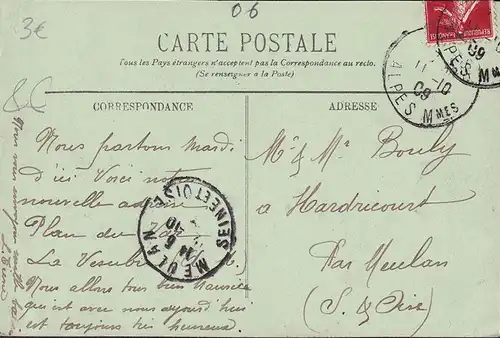 3€
06
CARTE POSTALE
Tous les Pays étrangers n'acceptent pas la Correspondance au recto.
(Se renseigner à la Poste)
REPUBLIQUE FRANÇAISE
11 10
09
ALPES MMES
09
ALPES MMES
CORRESPONDANCE
ADRESSE
Nous partons mardi
d'ici Voici notre
nouvelle
Plan du Var
La Vesubie
Nous allons tous bien Maurice
qui est avec nous aujourd'hui
est toujours très heureux.
Nous vous envoyons mille
MEULAN
SEINE ET OISE
6
10
Mr & Me Bouly
a Hardricourt
Par Meulan
(S. & Oise)